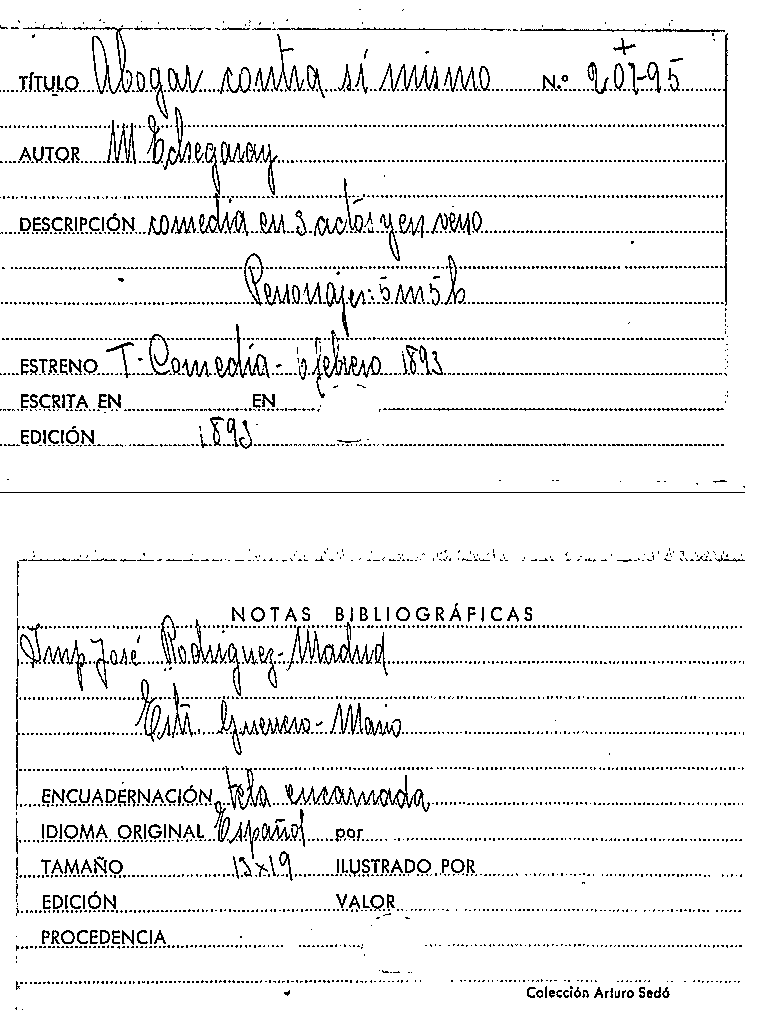 TÍTULO Abogar contra sí mismo N.º 207-95
AUTOR M Echegaray
DESCRIPCIÓN comedia en 3 actos y en verso
Personajes: 5 m 5 h
ESTRENO T. Comedia - 6 febrero 1893
ESCRITA EN EN
EDICIÓN 1893
NOTAS BIBLIOGRÁFICAS
Imp. José Rodriguez - Madrid
Estr. Guerrero - Mario
ENCUADERNACIÓN tela encarnada
IDIOMA ORIGINAL Español por
TAMAÑO 13x19 ILUSTRADO POR
EDICIÓN VALOR
PROCEDENCIA
Colección Arturo Sedó